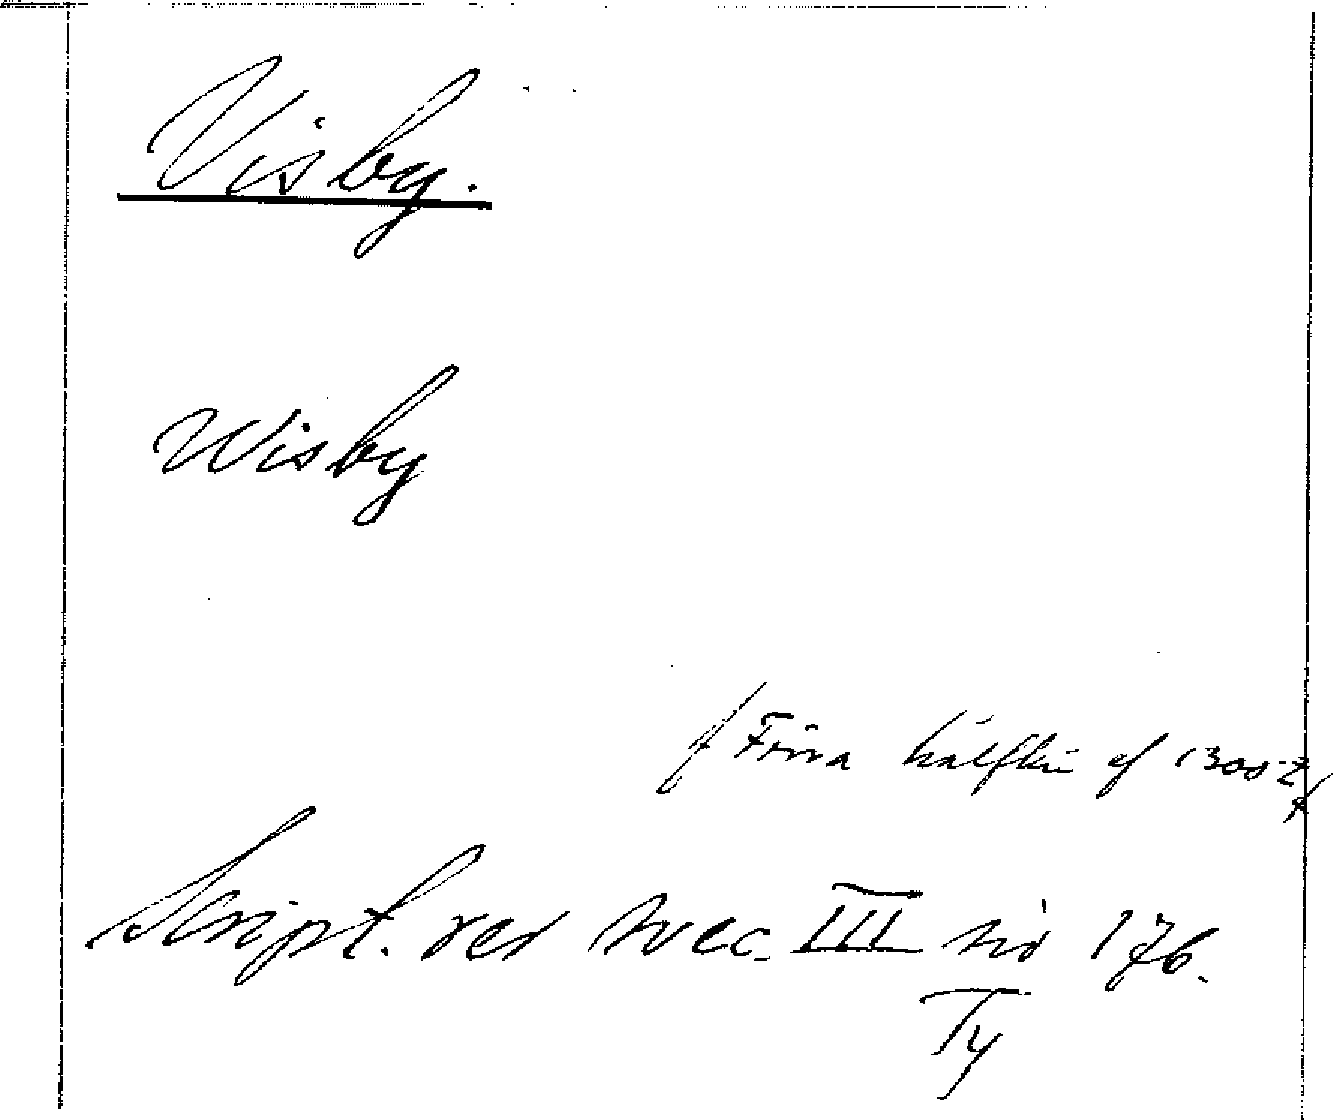 Visby.
Wisby
Förra hälften af 1300-t
Script. rer svec. III sid 176.
Ty